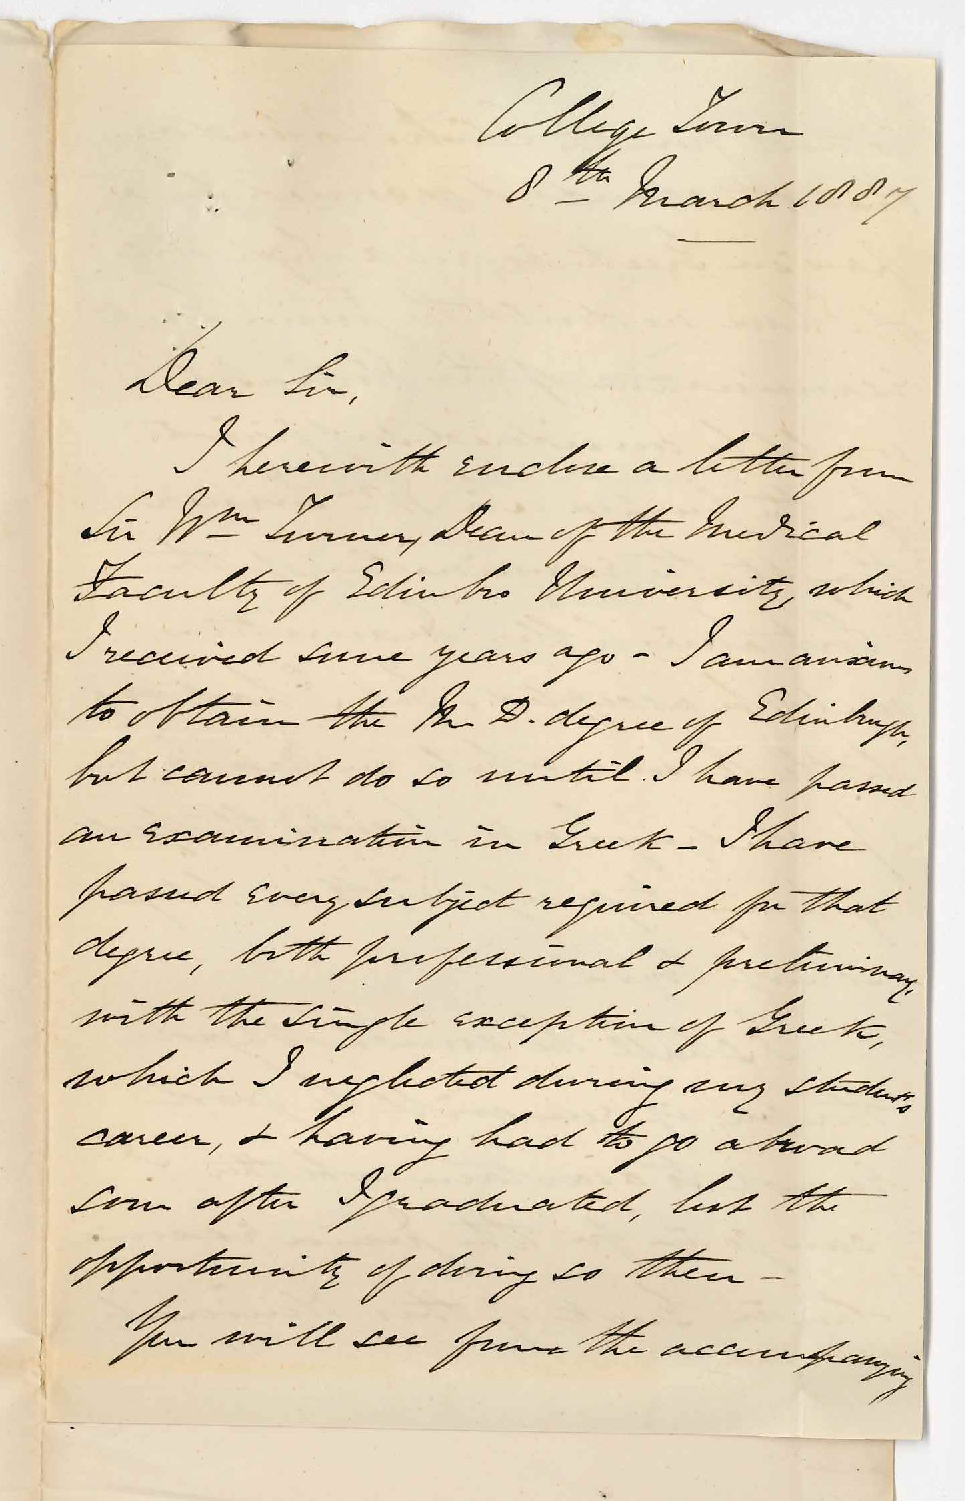 College Town
8th March 1887
Dear Sir,
I herewith enclose a letter from
Sir Wm Turner, Dean of the Medical
Faculty of Edinbro University, which
I received some years ago - I am anxious
to obtain the M. D. degree of Edinburgh,
but cannot do so until I have passed
an examination in Greek - I have
passed every subject required for that
degree, both professional & preliminary,
with the single exception of Greek,
which I neglected during my students
career, & having had to go abroad
soon after I graduated, lost the
opportunity of doing so then -
You will see from the accompanying